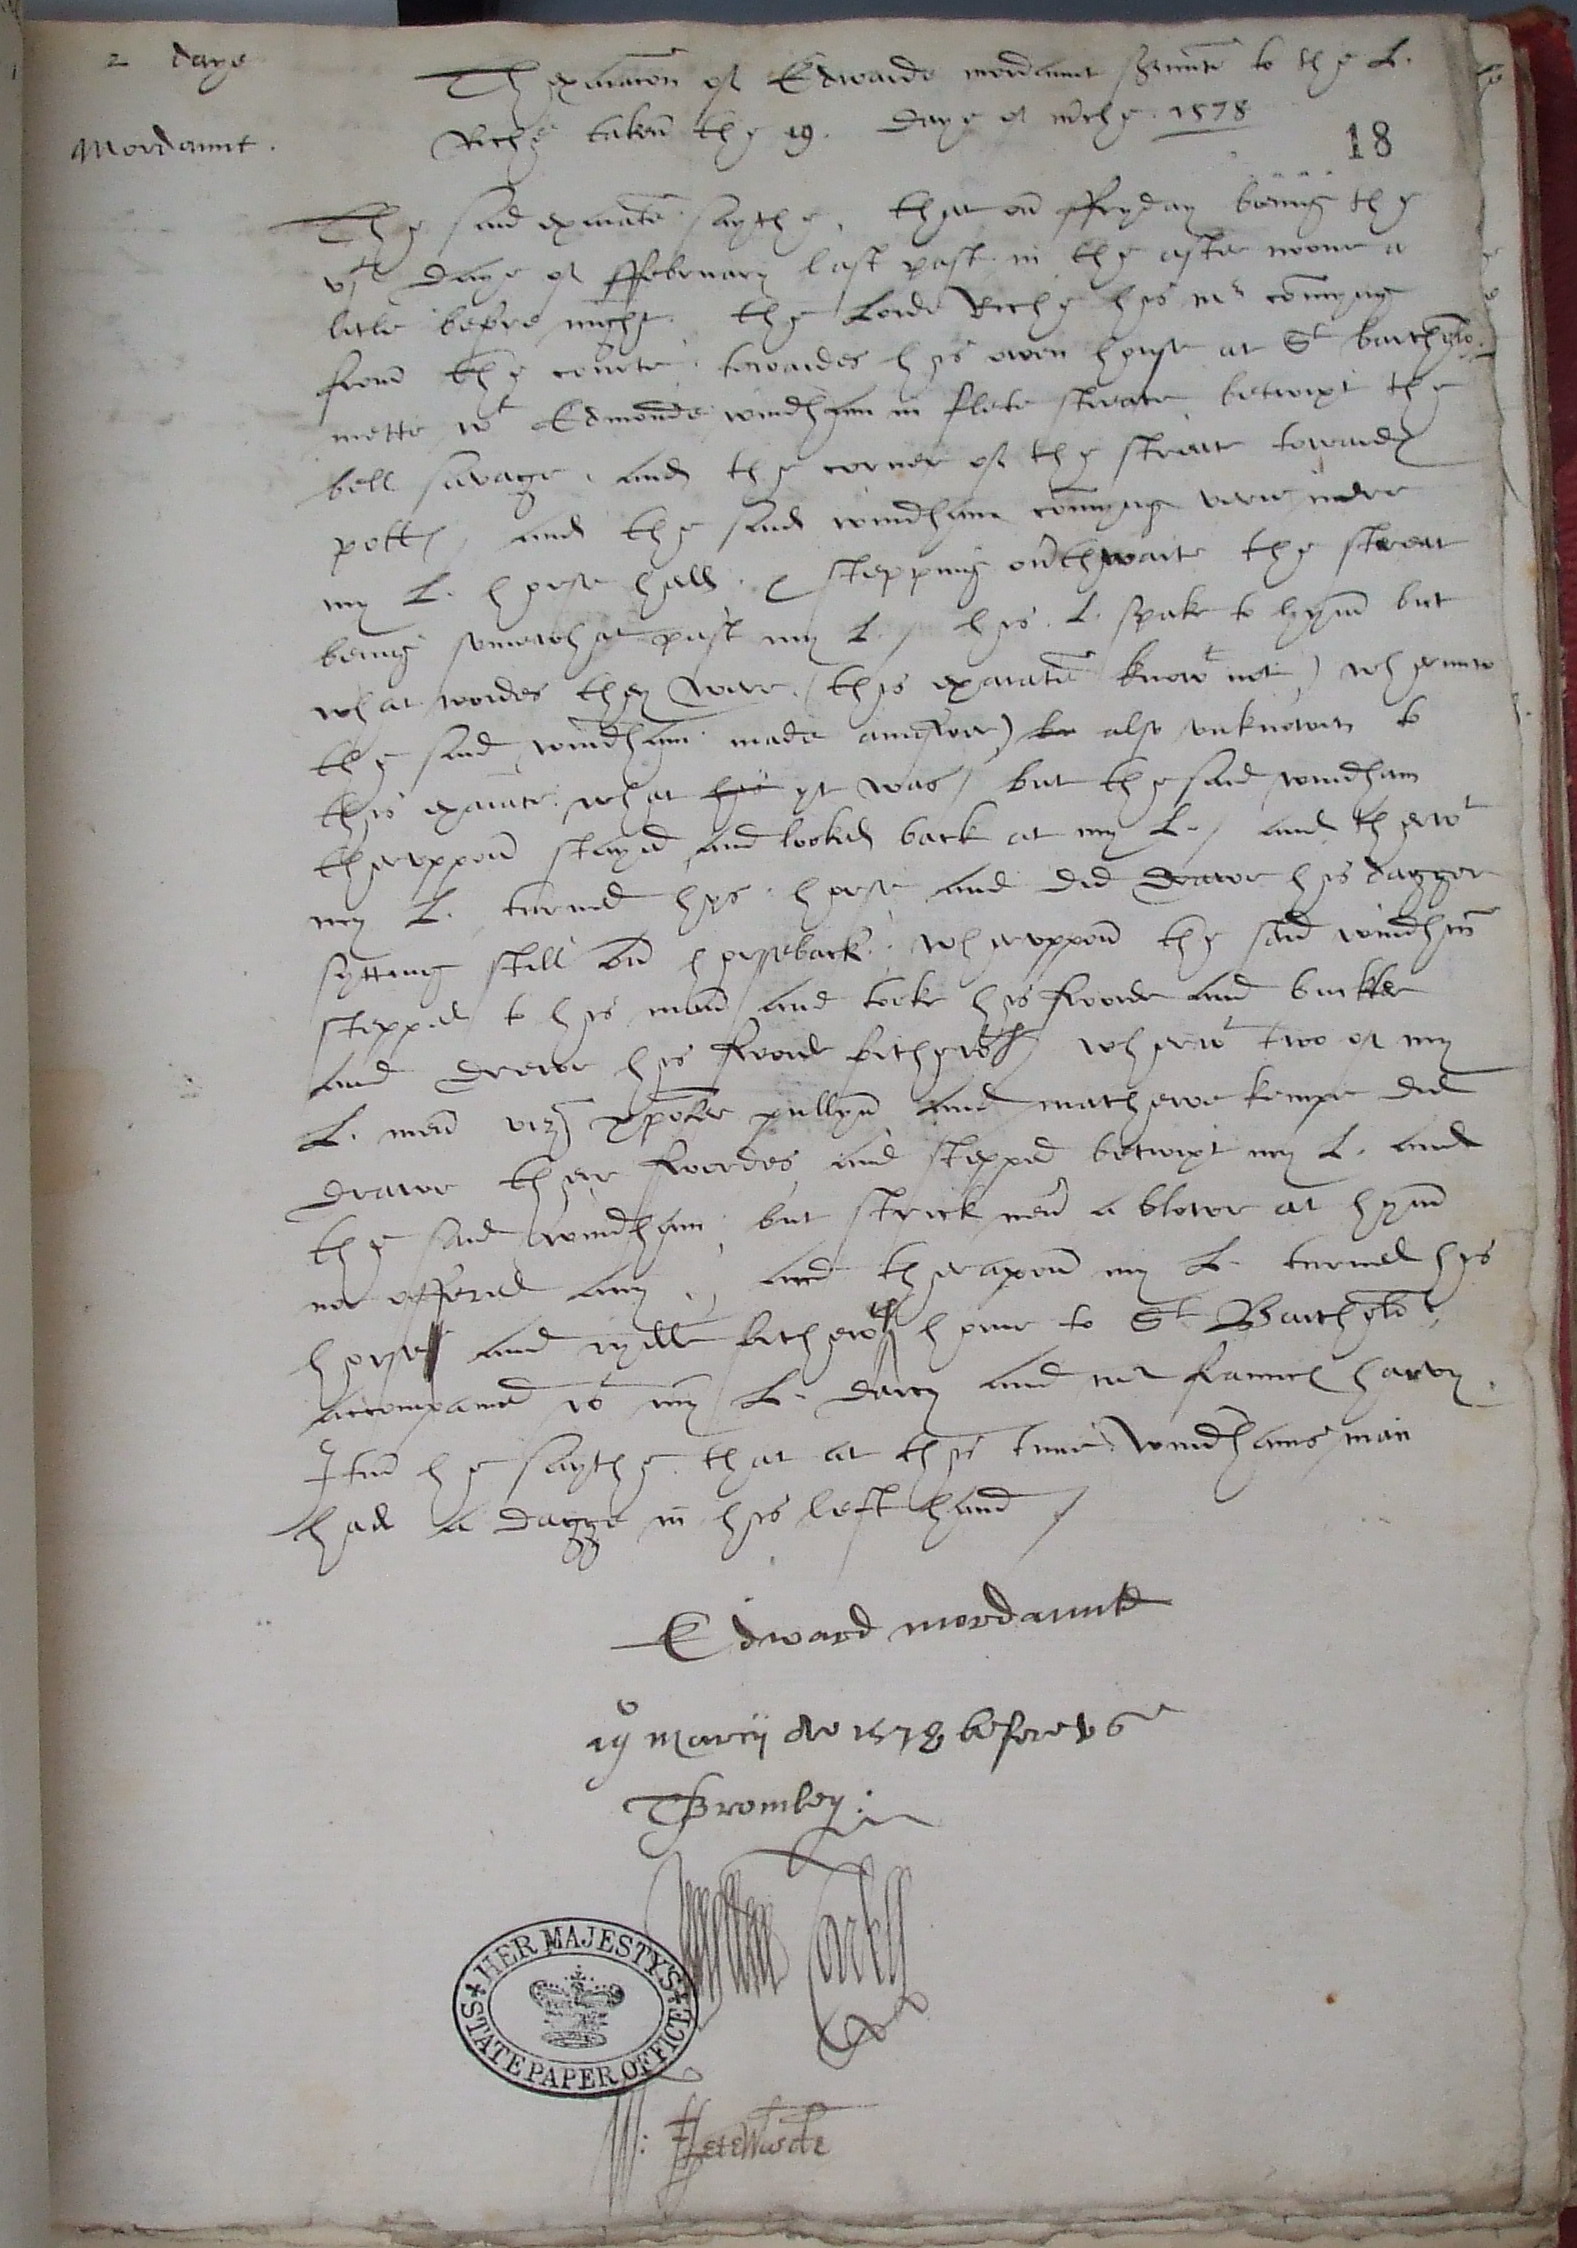 2 daye
Mordaunt.
Thexamiacon of Edwarde mordaunt servunte to the L.
Riche taken the 19. Daye of mche. 1578
18
The said examate saythe, that on ffryday being the
Daye of ffebruary last past in the after noone a
litle before night the Lorde Riche his mr comyng
from the courte towardes his owen house at St Barthelo.
mette wt Edmonde windham in flete streate betwixt the
bell savage, and the corner of the streate towards
and the said windham comyng vere neere
my L. horse hedd. & stepping the streat
being somewhat past my L. / his L. spake to hym but
what wordes they were (this examate knowt not) wherunto
the said windham made aunswer) be also unknowen to
this examate what his yt was / but the said windham
theruppon stayed and looked back at my L. / and therwt
my L. turned hys horse and did drawe his dagger
sytting still on horsseback. wheruppon the said windham
stepped to his man and tooke his sworde and buckler
and drewe his sword whervt two of my
L. men viz xpofer pullyn and mathewe kempe did
drawe ther swordes and stepped betwixt my L. and
the said windham but strick nev a blowe at hym
nor offered any, and therapon my L. turned his
horse and home to St Bartholo
accompaned wt my L. darcy and mr Frances harvy.
Itm he saythe that at this time windhams man
had a dagge in his left hand /
Edward mordaunte
19o Marcij Ao 1578 before us
TBromley:
William Cordell
HER MAJESTY'S
STATE PAPER OFFICE
W: ffletewoode